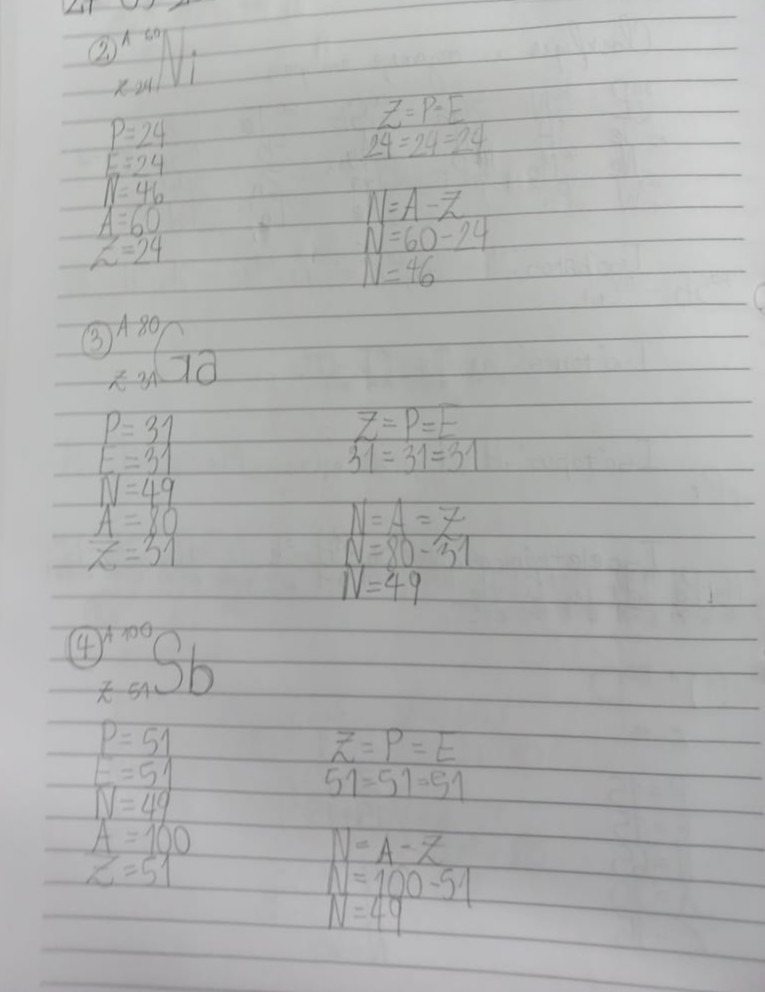 ② A 60
Ni
Z 24
P=24
E=24
N=46
A=60
Z=24
Z=P=E
24=24=24
N=A-Z
N=60-24
N=46
③ A 80
Ga
Z 31
P=31
E=31
N=49
A=80
Z=31
Z=P=E
31=31=31
N=A=Z
N=80-31
N=49
④ A 100
Sb
Z 51
P=51
E=51
N=49
A=100
Z=51
Z=P=E
51=51=51
N=A-Z
N=100-51
N=49